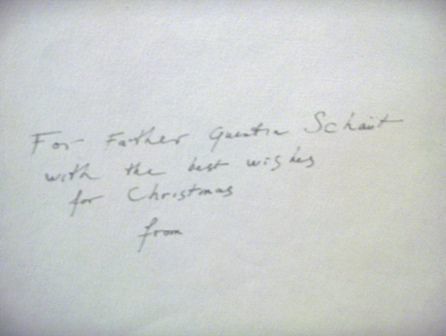 For Father Quentin Schaut
with the best wishes
for Christmas
from